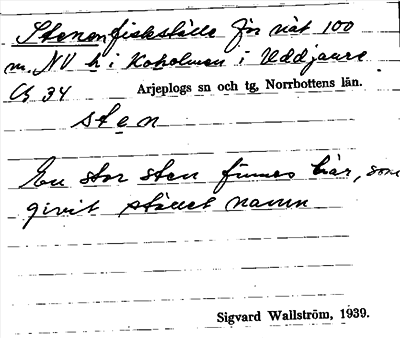 Stenen fiskställe för nät 100
m. NV h i Koholmen i Uddjaure
Arjeplogs sn och tg, Norrbottens län.
sten
En stor sten finnes här, som
givit stället namn
Sigvard Wallström, 1939.